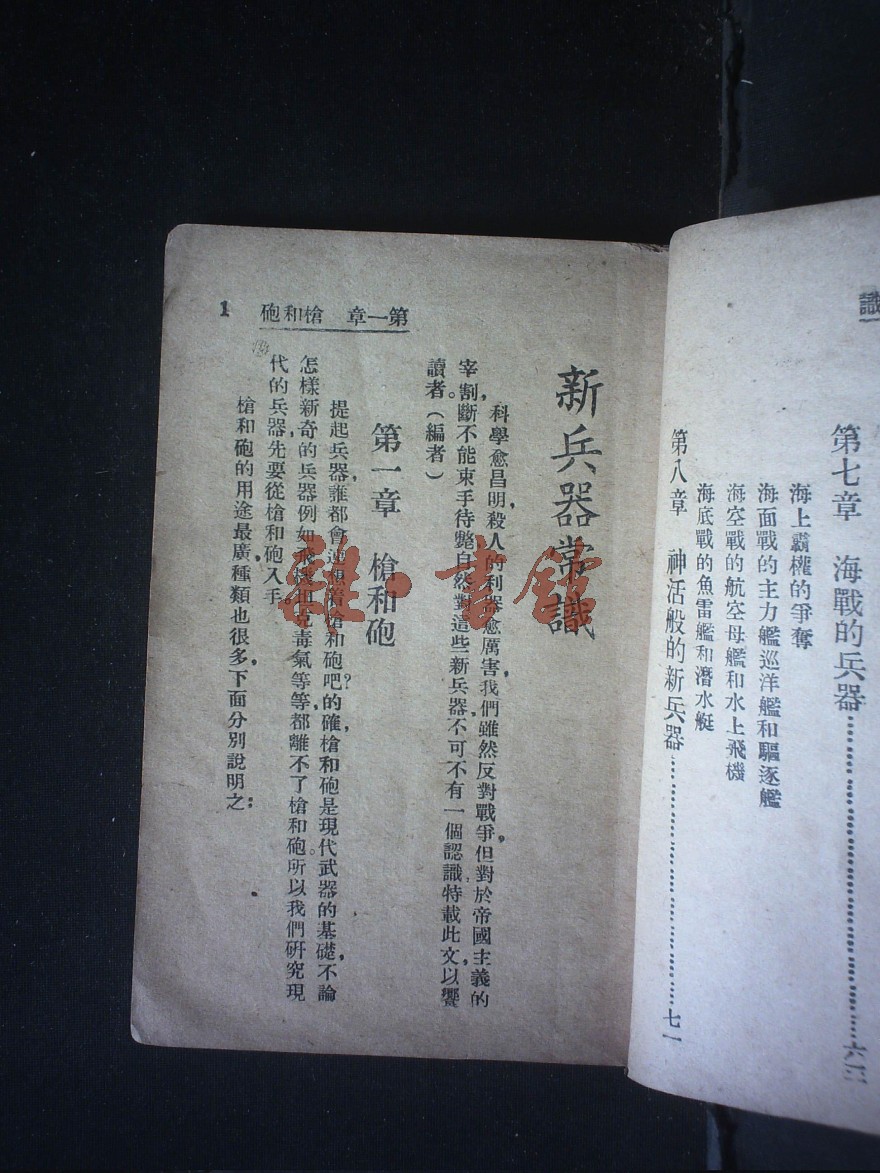 識
第七章　海戰的兵器……六三
海上霸權的爭奪
海面戰的主力艦巡洋艦和驅逐艦
海空戰的航空母艦和水上飛機
海底戰的魚雷艦和潛水艇
第八章　神活般的新兵器……七一
第一章　槍和砲
1
新兵器常識
科學愈昌明，殺人的利器愈厲害，我們雖然反對戰爭，但對於帝國主義的
宰割，斷不能束手待斃。自然對這些新兵器，不可不有一個認識，特載此文，以饗
讀者。（編者）
第一章　槍和砲
提起兵器，誰都會連想着槍和砲吧？的確，槍和砲是現代武器的基礎，不論
怎樣新奇的兵器，例如飛機坦克毒氣等等，都離不了槍和砲。所以我們研究現
代的兵器，先要從槍和砲入手。
槍和砲的用途最廣，種類也很多，下面分別說明之：
雜·書館